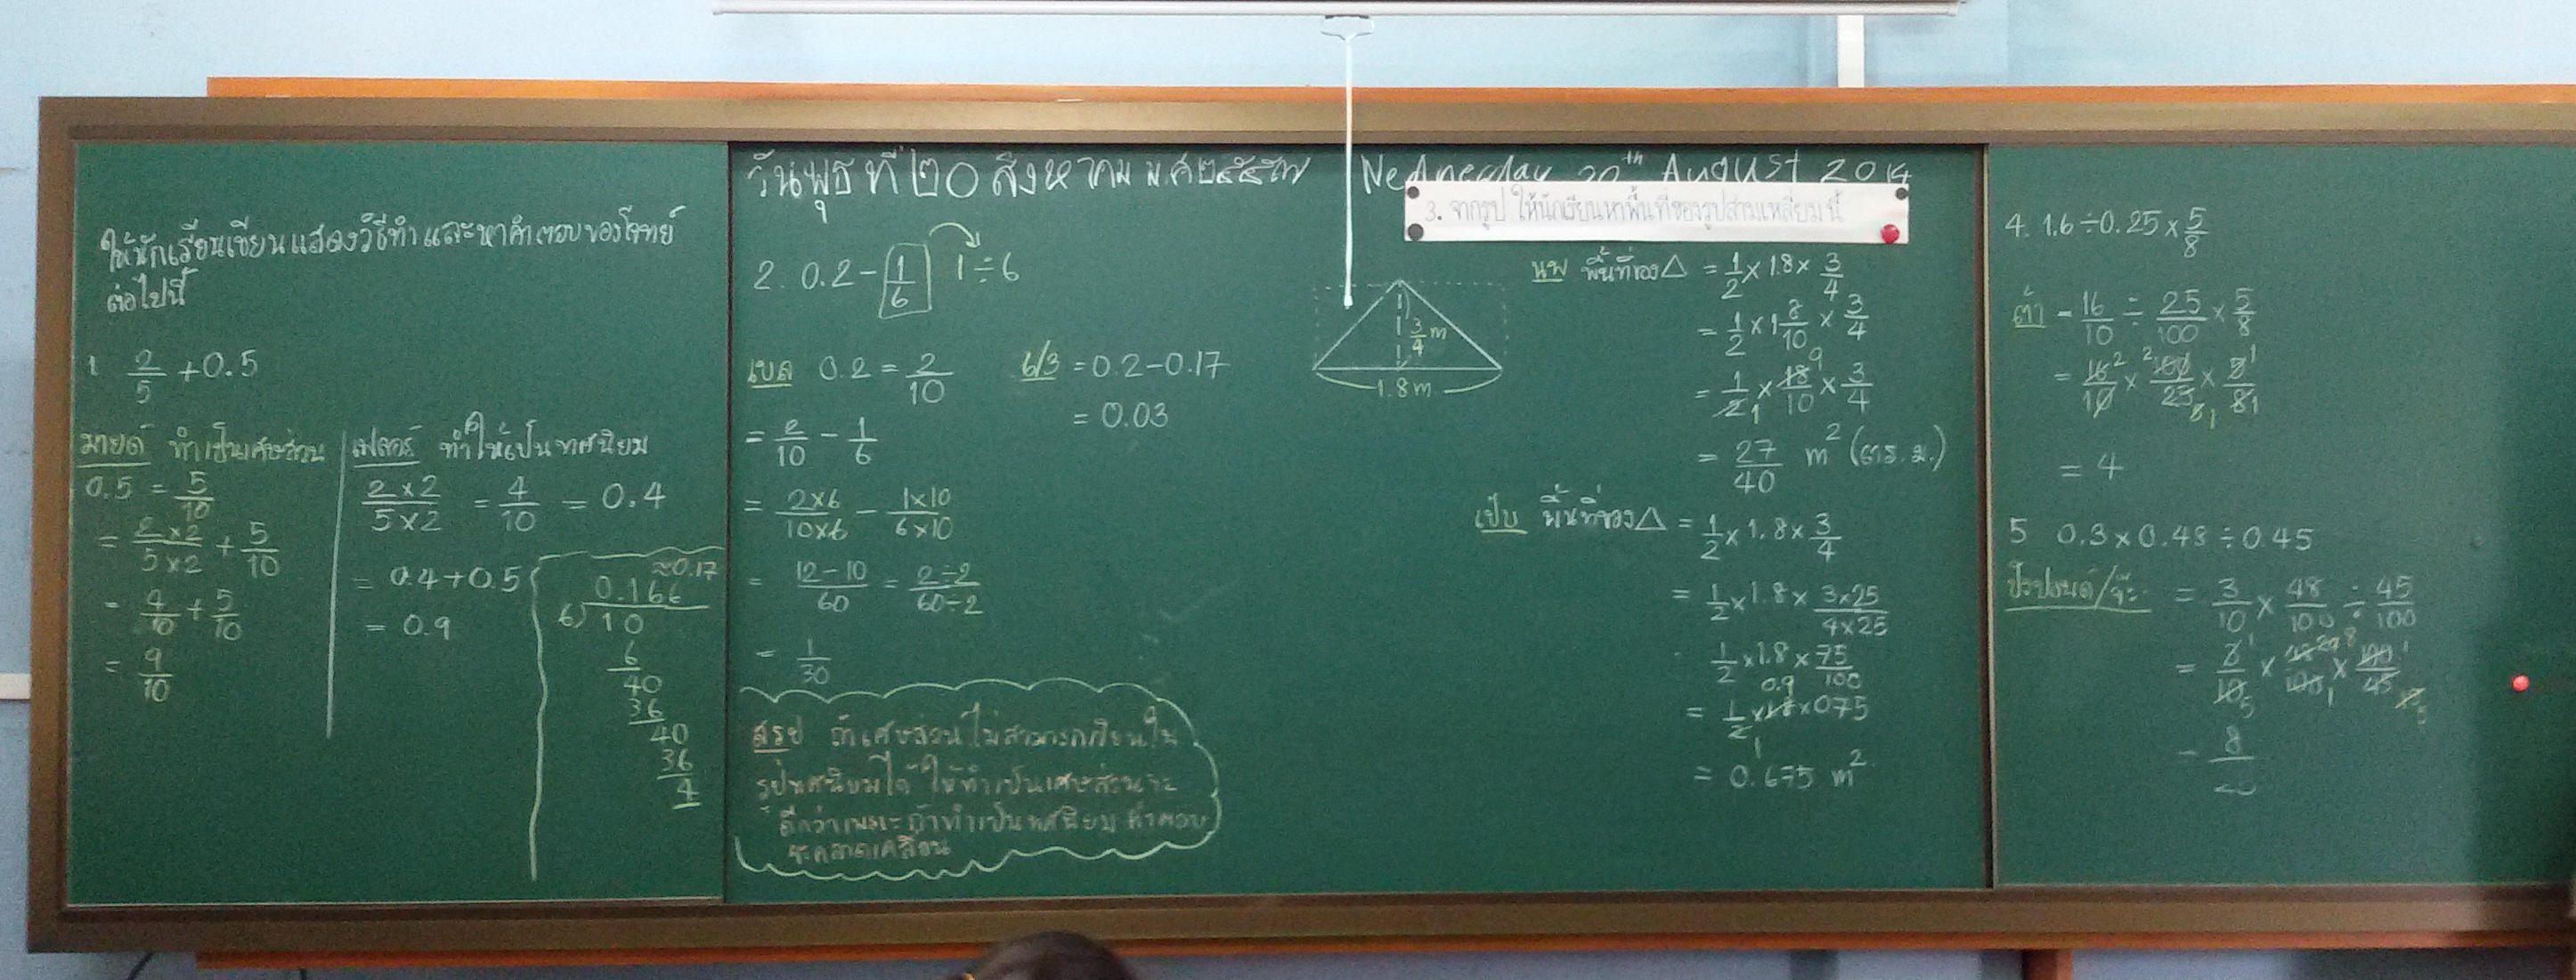 ให้นักเรียนเขียนแสดงวิธีทำและหาคำตอบของโจทย์
ต่อไปนี้
1 2/5 + 0.5
มายด์ ทำเป็นเศษส่วน
0.5 = 5/10
= 2×2/5×2 + 5/10
= 4/10 + 5/10
= 9/10
เฟลอร์ ทำให้เป็นทศนิยม
2×2/5×2 = 4/10 = 0.4
= 0.4+0.5
= 0.9
≈0.17
0.166
6)10
6
40
36
40
36
4
วันพุธ ที่ ๒๐ สิงหาคม พ.ศ ๒๕๕๗ Wednesday 20th August 2014
2. 0.2 - 1/6 1÷6
เบล 0.2 = 2/10
= 2/10 - 1/6
= 2×6/10×6 - 1×10/6×10
= 12-10/60 = 2÷2/60÷2
= 1/30
6/3 = 0.2-0.17
= 0.03
สรุป ถ้าเศษส่วนไม่สามารถเขียนใน
รูปทศนิยมได้ ให้ทำเป็นเศษส่วนจะ
ดีกว่าเพราะถ้าทำเป็นทศนิยม คำตอบ
จะคลาดเคลื่อน
3. จากรูป ให้นักเรียนหาพื้นที่ของรูปสามเหลี่ยมนี้
3/4 m
1.8 m
นพ พื้นที่ของ△ = 1/2 × 1.8 × 3/4
= 1/2 × 1 8/10 × 3/4
= 1/2 1 × 18 9/10 × 3/4
= 27/40 m² (ตร.ม.)
เป๊บ พื้นที่ของ△ = 1/2 × 1.8 × 3/4
= 1/2 × 1.8 × 3×25/4×25
1/2 × 1.8 × 75/100
0.9
= 1/2 × 1.8 × 0.75
1
= 0.675 m²
4. 1.6÷0.25×5/8
= 16/10 ÷ 25/100 × 5/8
= 16 2/10 × 2 100/25 5 1 × 5 1/8 1
= 4
5 0.3×0.48÷0.45
= 3/10 × 48/100 ÷ 45/100